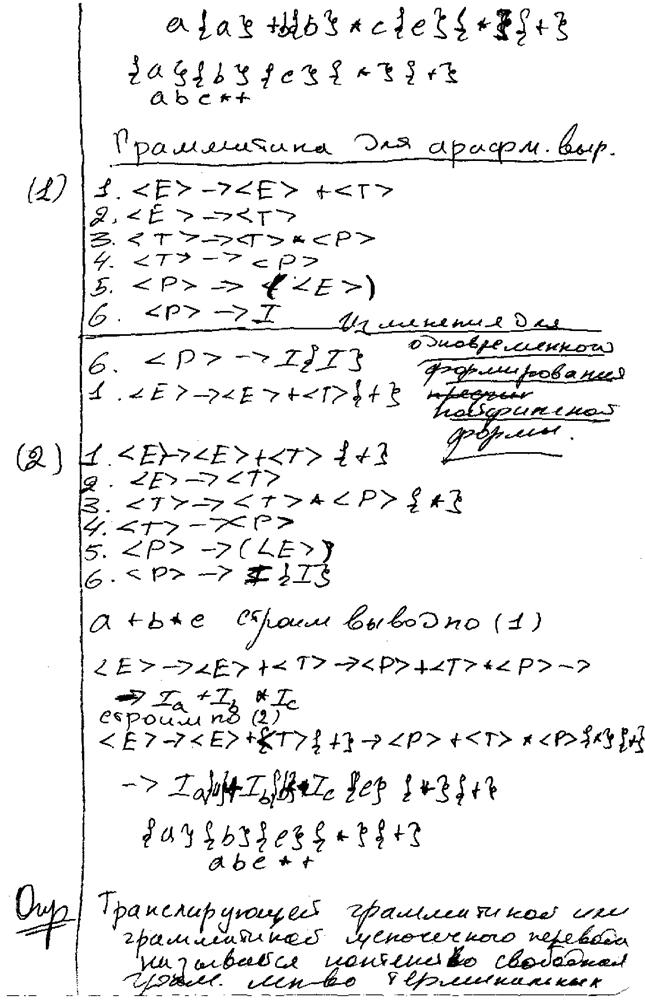 a{a} + b{b} * c{c}{*}{+}
{a}{b}{c}{*}{+}
abc*+
Грамматика для арифм. выр.
(1) 1. <E> -> <E> + <T>
2. <E> -> <T>
3. <T> -> <T> * <P>
4. <T> -> <P>
5. <P> -> (<E>)
6. <P> -> I
Изменения для
одновременной
6. <P> -> I{I}
формирования
1. <E> -> <E> + <T>{+}
постфиксной
формы.
(2) 1. <E> -> <E> + <T> {+}
2. <E> -> <T>
3. <T> -> <T> * <P> {*}
4. <T> -> <P>
5. <P> -> (<E>)
6. <P> -> I{I}
a + b * c строим вывод по (1)
<E> -> <E> + <T> -> <P> + <T> * <P> ->
-> Ia + Ib * Ic
строим по (2)
<E> -> <E> + <T>{+} -> <P> + <T> * <P>{*}{+}
-> Ia{a} + Ib{b} * Ic {c} {*}{+}
{a}{b}{c}{*}{+}
abc*+
Опр Транслирующей грамматикой или
грамматикой цепочечного перевода
называется контекстно свободная
грам. мн-во терминальных